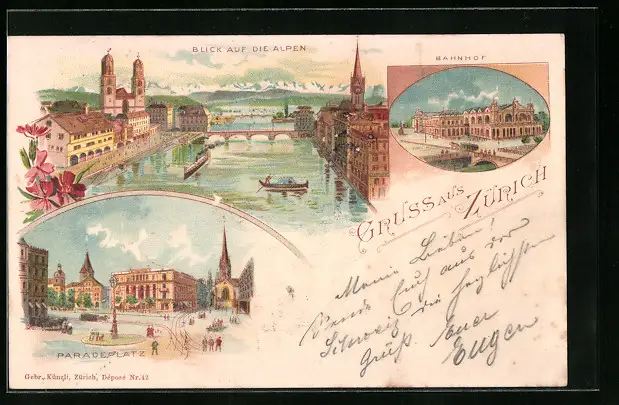 BLICK AUF DIE ALPEN
BAHNHOF
GRUSS AUS ZÜRICH
PARADEPLATZ
Meine Lieben!
Sende Euch aus der
Schweiz die herzlichsten
Grüße. Euer
Eugen
Gebr. Künzli, Zürich, Déposé Nr. 12